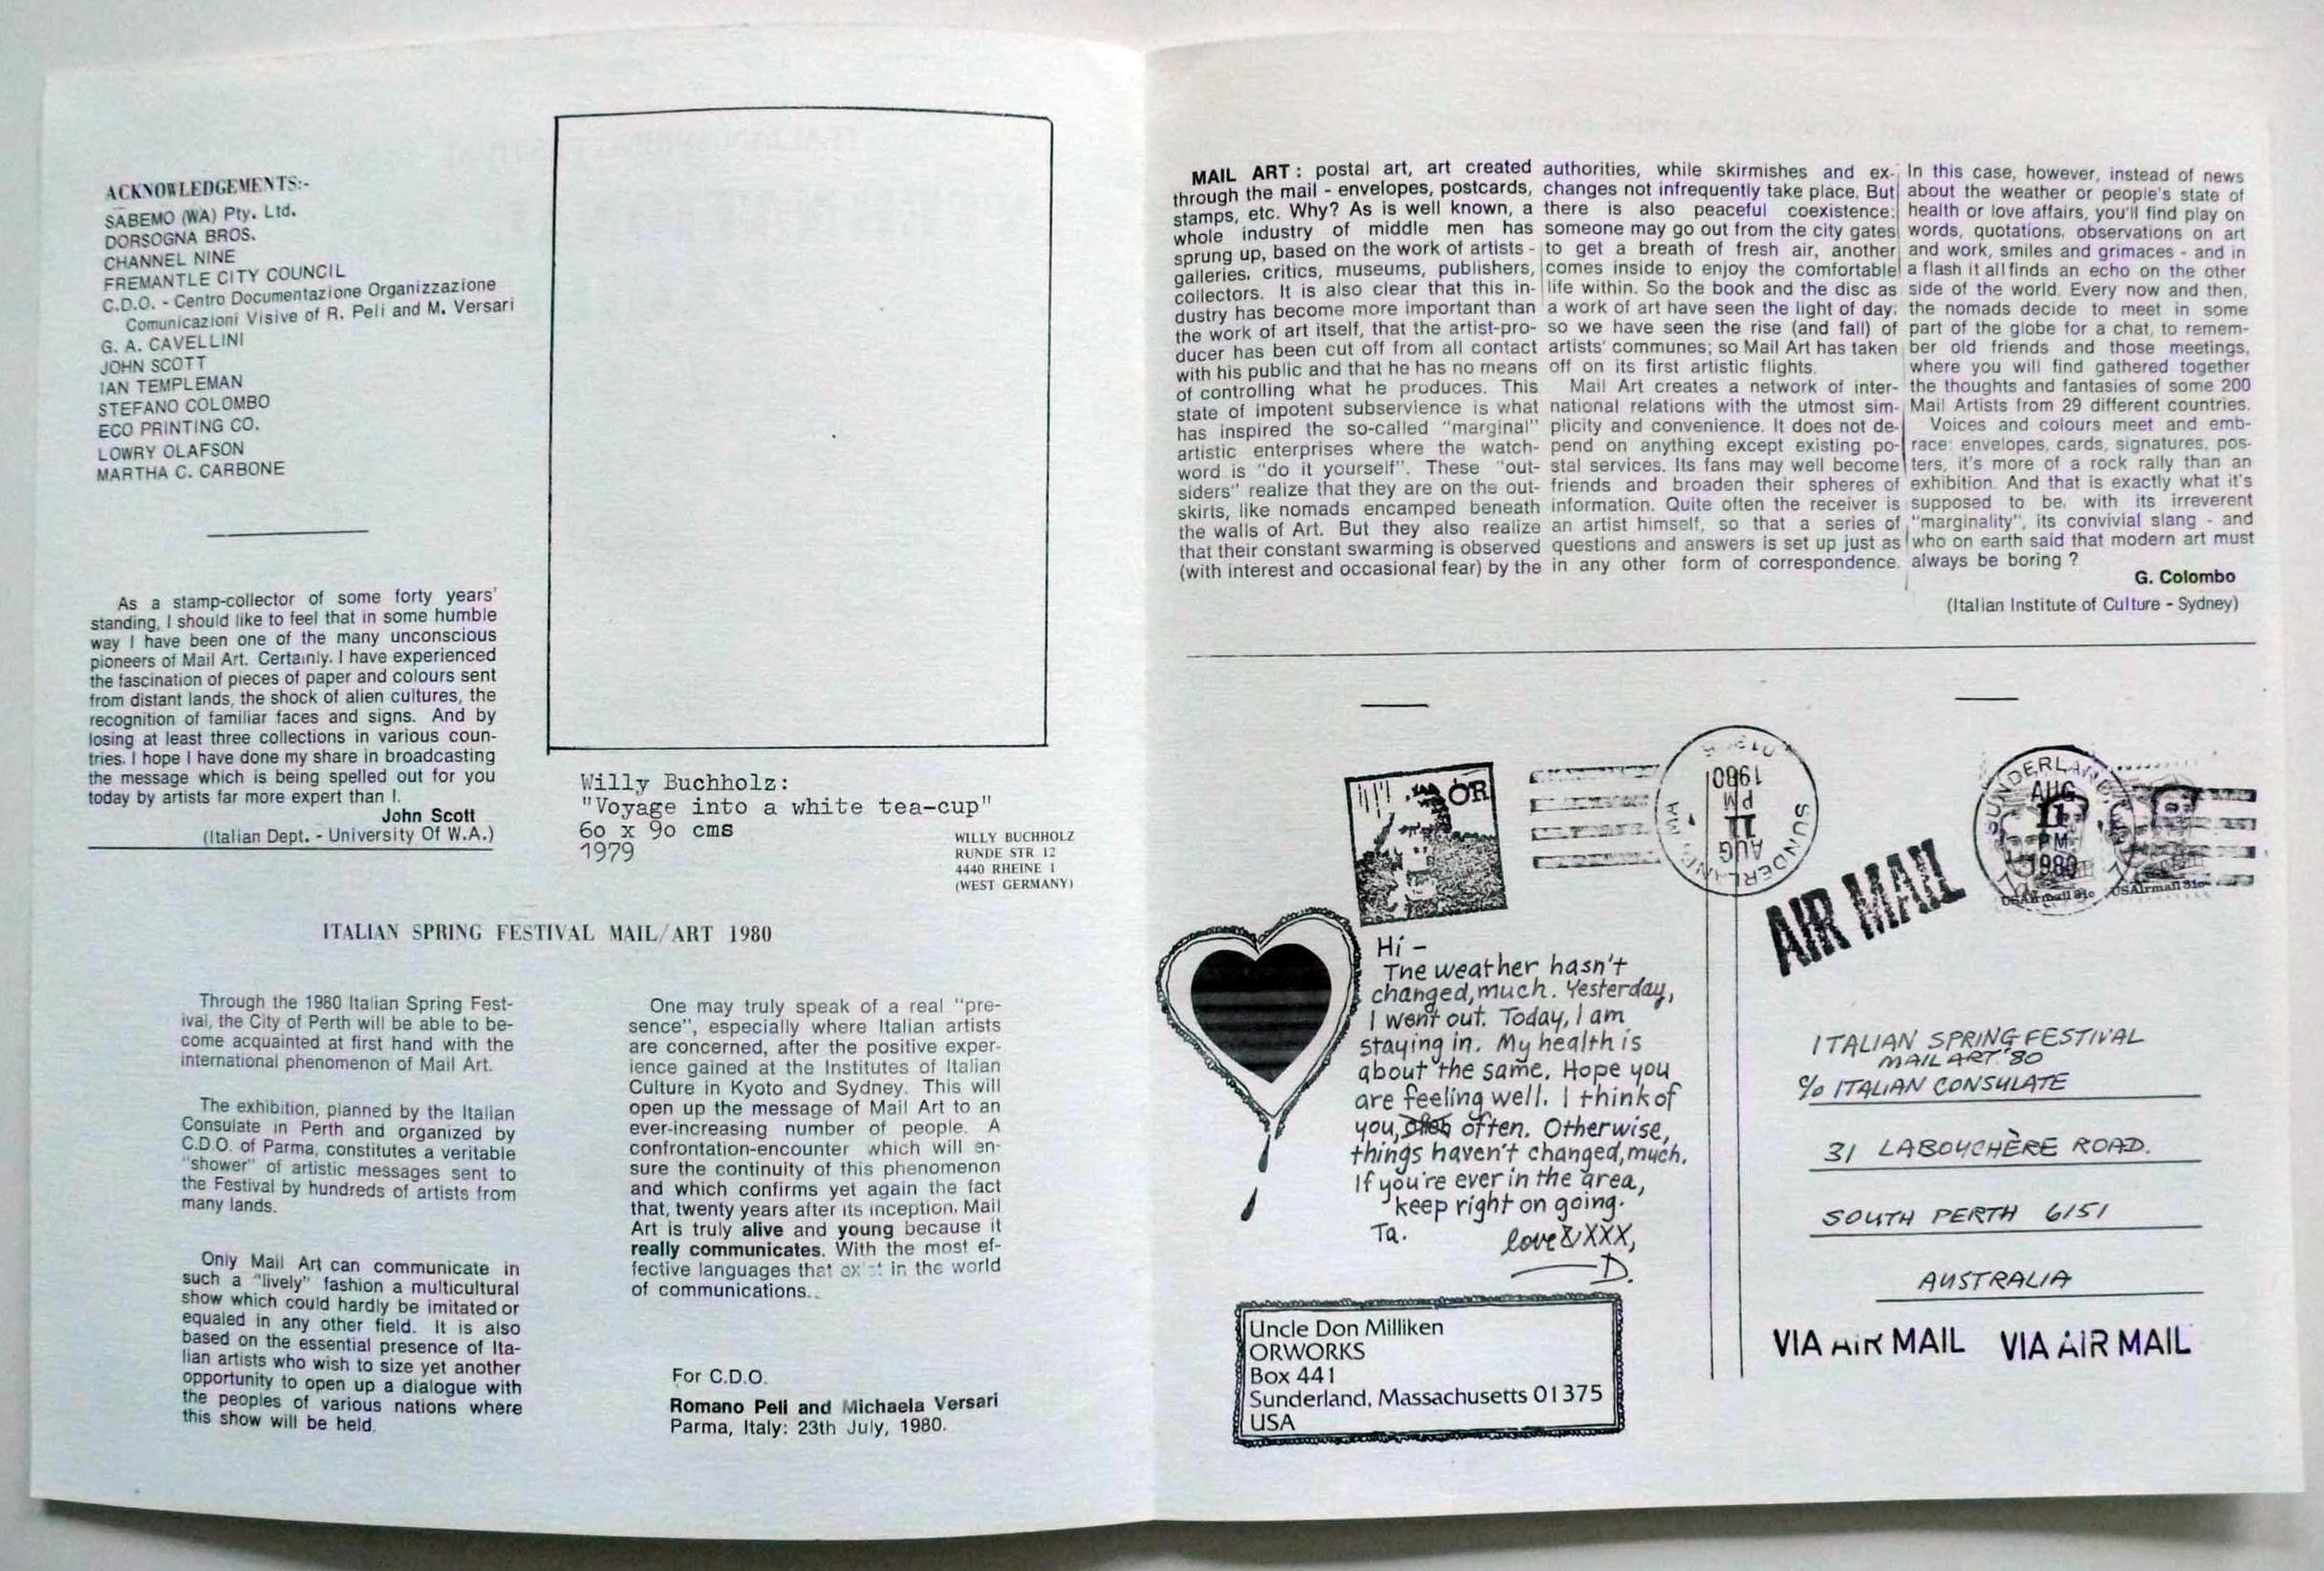 ACKNOWLEDGEMENTS:-
SABEMO (WA) Pty. Ltd.
DORSOGNA BROS.
CHANNEL NINE
FREMANTLE CITY COUNCIL
C.D.O. - Centro Documentazione Organizzazione
Comunicazioni Visive of R. Peli and M. Versari
G. A. CAVELLINI
JOHN SCOTT
IAN TEMPLEMAN
STEFANO COLOMBO
ECO PRINTING CO.
LOWRY OLAFSON
MARTHA C. CARBONE
As a stamp-collector of some forty years'
standing, I should like to feel that in some humble
way I have been one of the many unconscious
pioneers of Mail Art. Certainly. I have experienced
the fascination of pieces of paper and colours sent
from distant lands, the shock of alien cultures, the
recognition of familiar faces and signs. And by
losing at least three collections in various coun-
tries. I hope I have done my share in broadcasting
the message which is being spelled out for you
today by artists far more expert than I.
John Scott
(Italian Dept. - University Of W.A.)
Willy Buchholz:
"Voyage into a white tea-cup"
60 x 90 cms
1979
WILLY BUCHHOLZ
RUNDE STR. 12
4440 RHEINE 1
(WEST GERMANY)
ITALIAN SPRING FESTIVAL MAIL/ART 1980
Through the 1980 Italian Spring Fest-
ival, the City of Perth will be able to be-
come acquainted at first hand with the
international phenomenon of Mail Art.
The exhibition, planned by the Italian
Consulate in Perth and organized by
C.D.O. of Parma, constitutes a veritable
"shower" of artistic messages sent to
the Festival by hundreds of artists from
many lands.
Only Mail Art can communicate in
such a "lively" fashion a multicultural
show which could hardly be imitated or
equaled in any other field. It is also
based on the essential presence of Ita-
lian artists who wish to size yet another
opportunity to open up a dialogue with
the peoples of various nations where
this show will be held.
One may truly speak of a real "pre-
sence", especially where Italian artists
are concerned, after the positive exper-
ience gained at the Institutes of Italian
Culture in Kyoto and Sydney. This will
open up the message of Mail Art to an
ever-increasing number of people. A
confrontation-encounter which will en-
sure the continuity of this phenomenon
and which confirms yet again the fact
that, twenty years after its inception, Mail
Art is truly alive and young because it
really communicates. With the most ef-
fective languages that exist in the world
of communications..
For C.D.O.
Romano Peli and Michaela Versari
Parma, Italy: 23th July, 1980.
MAIL ART : postal art, art created
through the mail - envelopes, postcards,
stamps, etc. Why? As is well known, a
whole industry of middle men has
sprung up, based on the work of artists -
galleries, critics, museums, publishers,
collectors. It is also clear that this in-
dustry has become more important than
the work of art itself, that the artist-pro-
ducer has been cut off from all contact
with his public and that he has no means
of controlling what he produces. This
state of impotent subservience is what
has inspired the so-called "marginal"
artistic enterprises where the watch-
word is "do it yourself". These "out-
siders" realize that they are on the out-
skirts, like nomads encamped beneath
the walls of Art. But they also realize
that their constant swarming is observed
(with interest and occasional fear) by the
authorities, while skirmishes and ex-
changes not infrequently take place. But
there is also peaceful coexistence:
someone may go out from the city gates
to get a breath of fresh air, another
comes inside to enjoy the comfortable
life within. So the book and the disc as
a work of art have seen the light of day;
so we have seen the rise (and fall) of
artists' communes; so Mail Art has taken
off on its first artistic flights.
Mail Art creates a network of inter-
national relations with the utmost sim-
plicity and convenience. It does not de-
pend on anything except existing po-
stal services. Its fans may well become
friends and broaden their spheres of
information. Quite often the receiver is
an artist himself, so that a series of
questions and answers is set up just as
in any other form of correspondence.
In this case, however, instead of news
about the weather or people's state of
health or love affairs, you'll find play on
words, quotations, observations on art
and work, smiles and grimaces - and in
a flash it all finds an echo on the other
side of the world. Every now and then,
the nomads decide to meet in some
part of the globe for a chat, to remem-
ber old friends and those meetings,
where you will find gathered together
the thoughts and fantasies of some 200
Mail Artists from 29 different countries.
Voices and colours meet and emb-
race: envelopes, cards, signatures, pos-
ters, it's more of a rock rally than an
exhibition. And that is exactly what it's
supposed to be, with its irreverent
"marginality", its convivial slang - and
who on earth said that modern art must
always be boring ?
G. Colombo
(Italian Institute of Culture - Sydney)
OR
SUNDERLAND, MA
AUG
11
PM
1980
SUNDERLAND, MA
AUG
11
PM
1980
USAirmail 31c
USAirmail 31c
AIR MAIL
Hi -
The weather hasn't
changed, much. Yesterday,
I went out. Today, I am
staying in. My health is
about the same. Hope you
are feeling well. I think of
you, often. Otherwise,
things haven't changed, much.
If you're ever in the area,
keep right on going.
Ta.
love & XXX,
D.
Uncle Don Milliken
ORWORKS
Box 441
Sunderland, Massachusetts 01375
USA
ITALIAN SPRING FESTIVAL
MAIL ART '80
c/o ITALIAN CONSULATE
31 LABOUCHÈRE ROAD.
SOUTH PERTH 6151
AUSTRALIA
VIA AIR MAIL VIA AIR MAIL